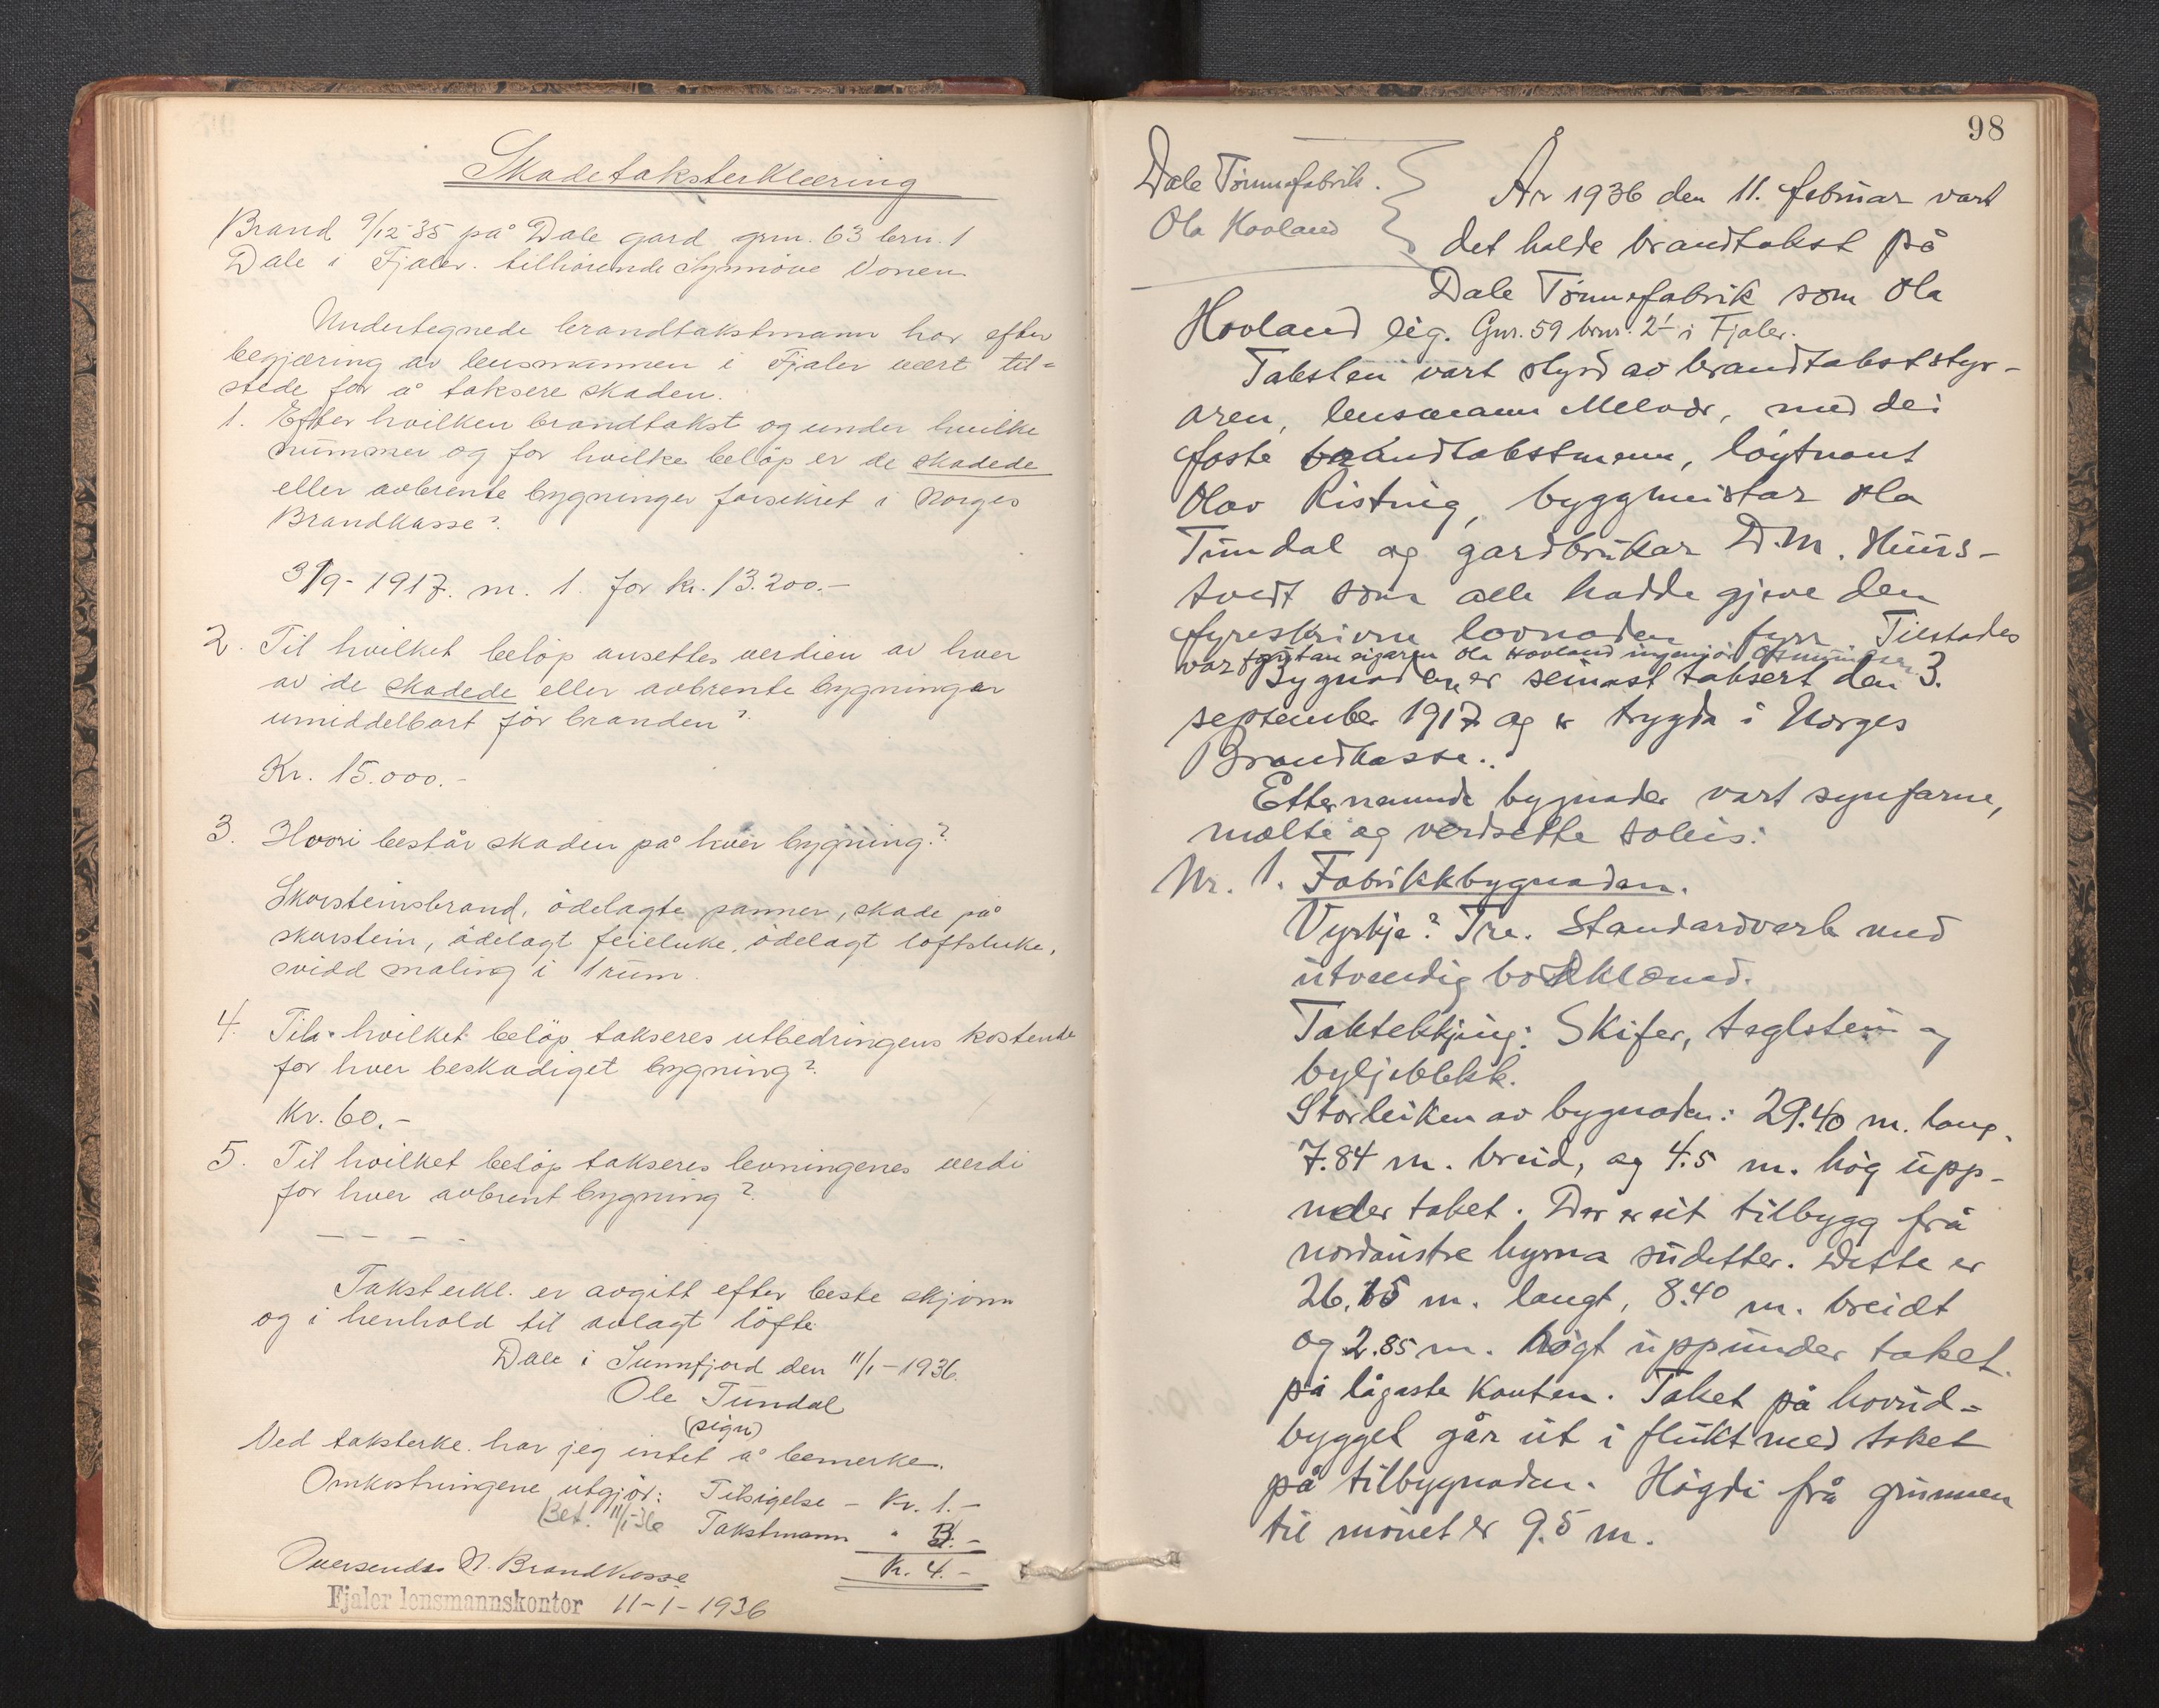 Skadetaksterklæring
Brand 9/12-35 på Dale gard grn. 63 brn. 1
Dale i Fjaler. tilhörende Synnöve Vonen
Undertegnede brandtakstmann har efter
begjæring av lensmannen i Fjaler vært til=
stede for å taksere skaden.
1. Efter hvilken brandtakst og under hvilke
nummer og for hvilke belöp er de skadede
eller avbrente bygninger forsikret i Norges
Brandkasse?
3/9-1917. nr. 1. for kr. 13.200.-
2. Til hvilket belöp ansettes verdien av hver
av de skadede eller avbrente bygninger
umiddelbart för branden?
Kr. 15.000.-
3. Hvori består skaden på hver bygning?
Skorsteinsbrand, ödelagte panner, skade på
skorstein, ödelagt feieluke, ödelagt loftsluke,
svidd maling i 1 rum.
4. Til hvilket belöp takseres utbedringens kostende
for hver beskadiget bygning?
Kr. 60.-
5. Til hvilket belöp takseres levningenes verdi
for hver avbrent bygning?
- - - -
Taksterkl. er avgitt efter beste skjönn
og i henhold til avlagt löfte
Dale i Sunnfjord den 11/1-1936.
Ole Tundal
(sign)
Ved taksterkl. har jeg intet å bemerke.
Omkostningene utgjör: Tilsigelse - Kr. 1.-
Bet. 11/1-36 Takstmann " 3.-
Kr. 4.-
Oversendes N. Brandkasse
Fjaler lensmannskontor 11-1-1936
98
Dale Tönnefabrik.
Ola Hovland
År 1936 den 11. februar vart
det halde brandtakst på
Dale Tönnefabrik som Ola
Hovland eig. Gnr. 59 brnr. 21 i Fjaler.
Taksten vart styrd av brandtakststyr-
aren, lensmann Melvær, med dei
faste brandtakstmenn, löytnant
Olav Risting, byggmeistar Ola
Tundal og gardbrukar D.M. Huus-
tvedt som alle hadde gjeve den
fyreskrivne lovnaden fyrr. Tilstades
var forutan eigaren Ola Hovland ingeniör
Bygnaden er seinast taksert den 3.
september 1917 og er trygda i Norges
Brandkasse.
Etternemnde bygnader vart synfarne,
mælte og verdsette soleis:
Nr. 1. Fabrikkbygnaden.
Vyrkje? Tre. Standardverk med
utvendig bordklædnad.
Taktekkjing: Skifer, teglstein og
bylgjeblekk.
Storleiken av bygnaden: 29.40 m. lang,
7.84 m. breid, og 4.5 m. høg upp-
under taket. Der er eit tilbygg frå
nordaustre hyrna sudetter. Dette er
26.15 m. langt, 8.40 m. breidt
og 2.85 m. högt uppunder taket
på lågaste kanten. Taket på hovud-
bygget går ut i flukt med taket
på tilbygnaden. Högdi frå grunnen
til mönet er 9.5 m.